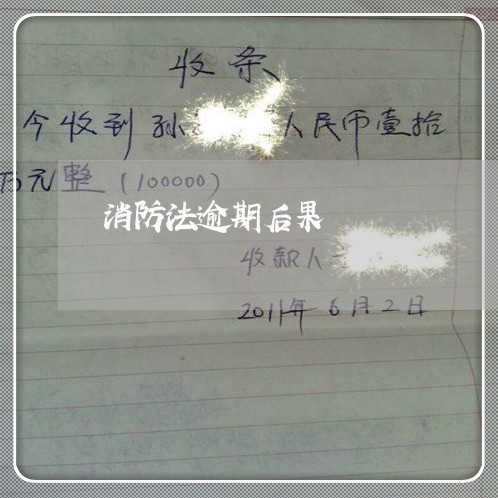 收条
今收到孙 人民币壹拾
万元整（100000）
消防法逾期后果
收款人
2011年6月2日